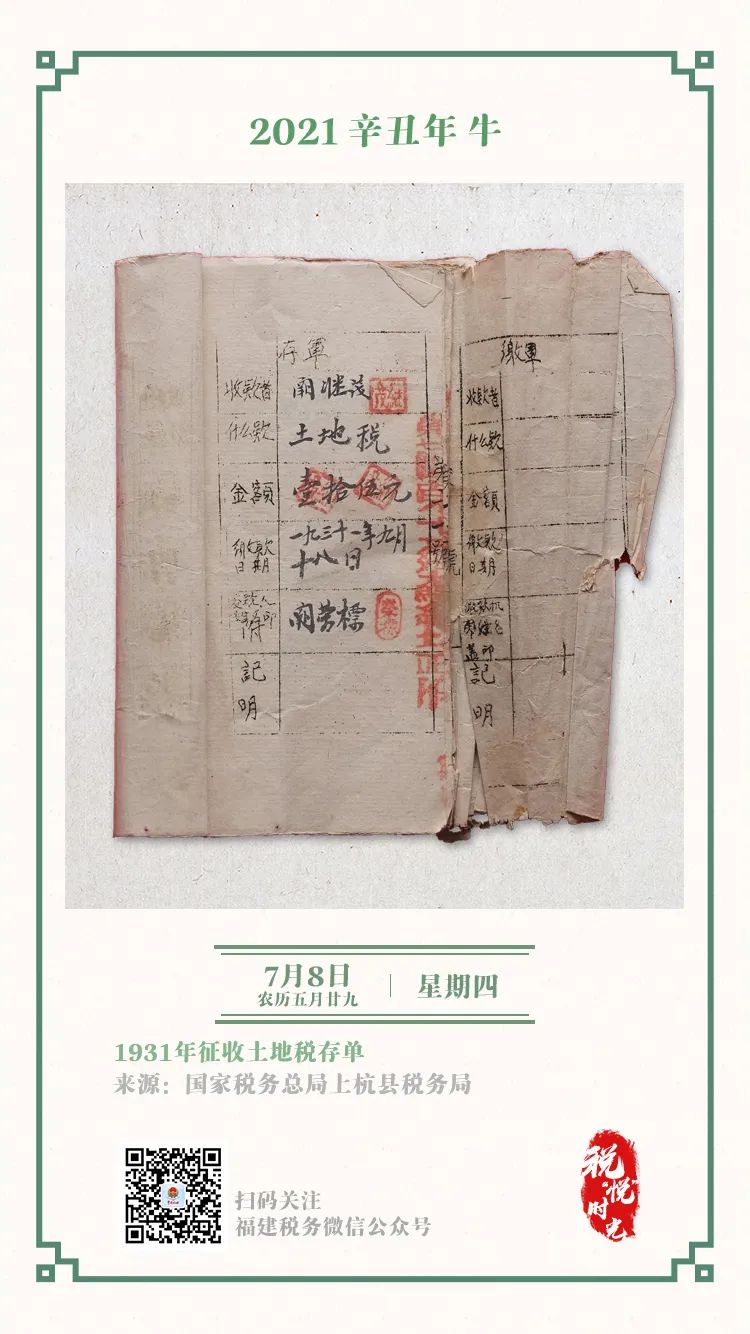 2021 辛丑年 牛
存單
收款者
開继茂
什么款
土地税
金額
壹拾伍元
繳款
日期
一九三十一年九月
十八日
開荣標
記
明
繳單
收款者
什么款
金額
繳款
日期
蓋印
記
明
7月8日
农历五月廿九
星期四
1931年征收土地税存单
来源：国家税务总局上杭县税务局
扫码关注
福建税务微信公众号
税
“悦”
时
光